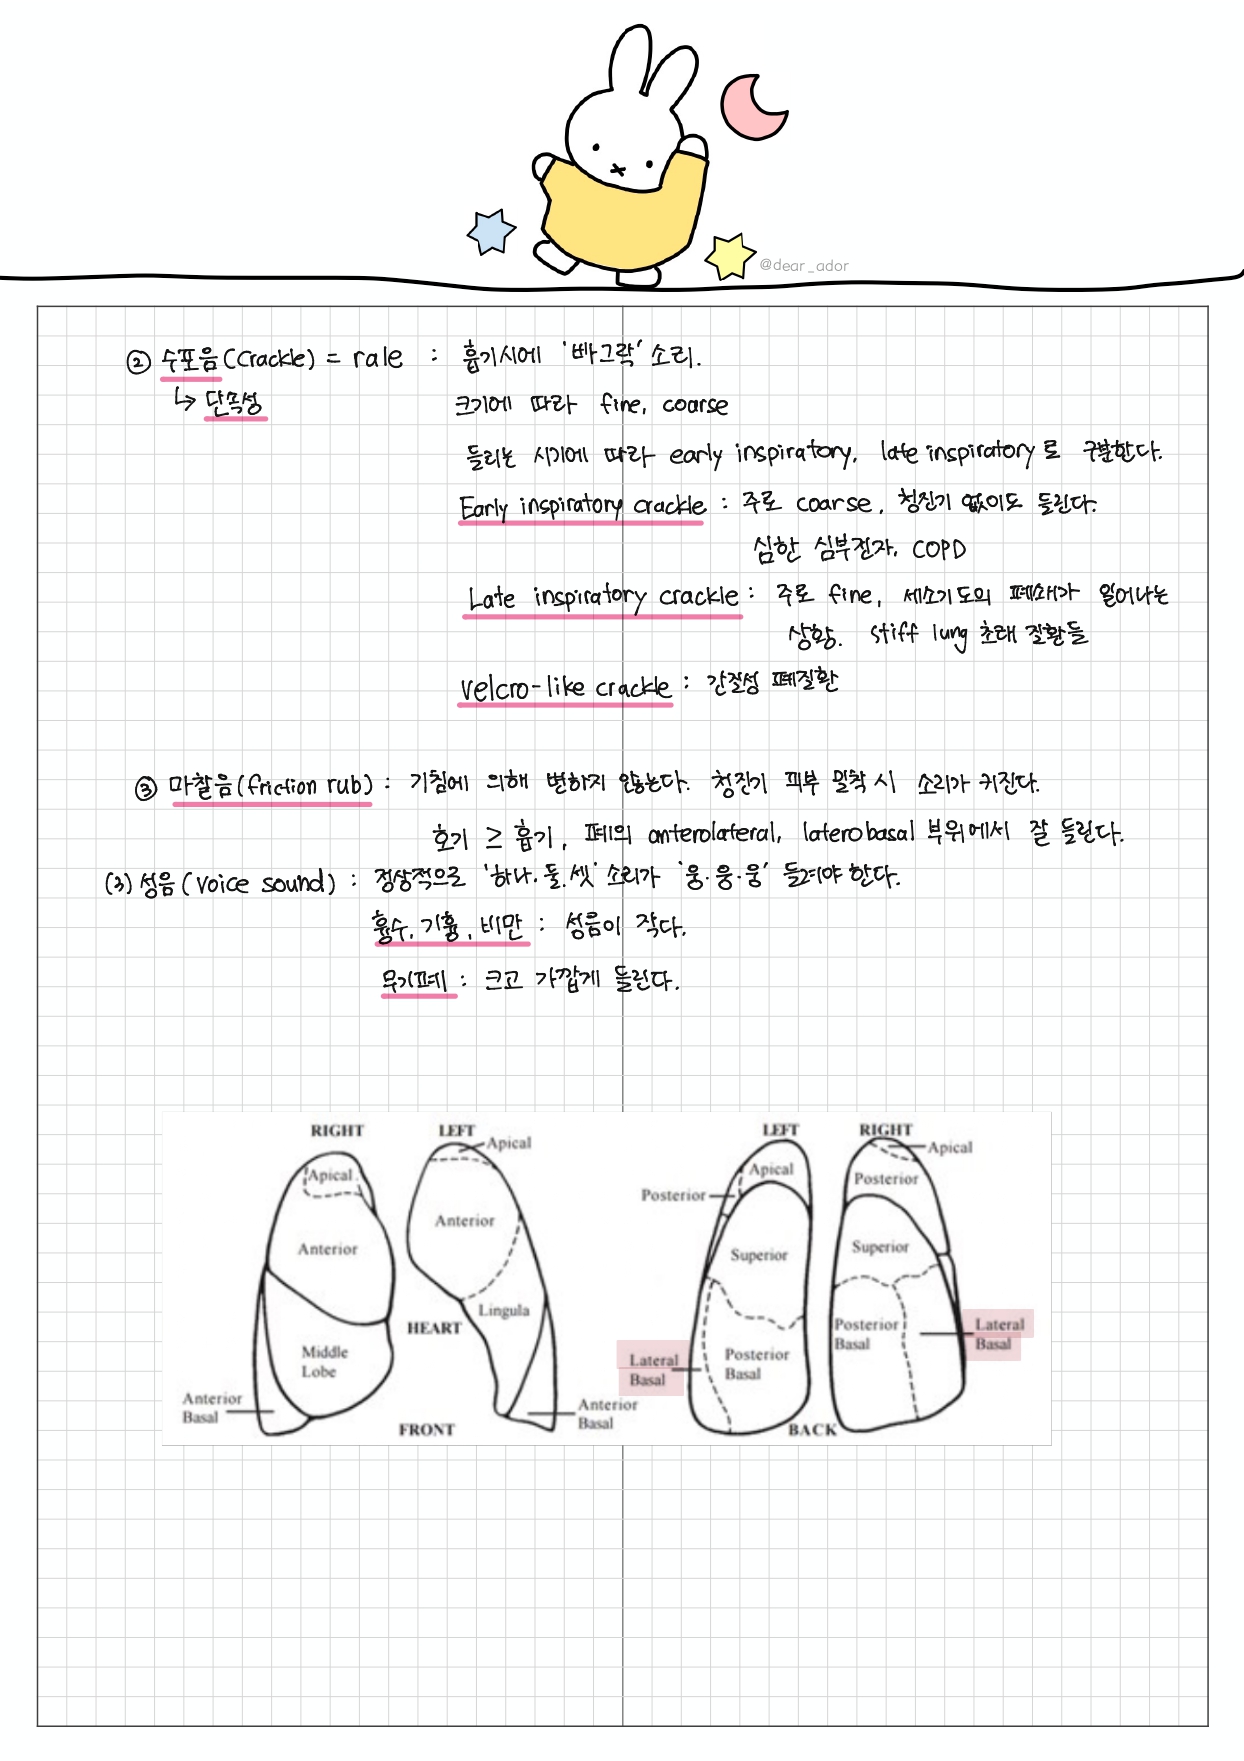 @dear_ador
② 수포음(Crackle) = rale : 흡기시에 '빠그락' 소리.
↳ 단속성
크기에 따라 fine, coarse
들리는 시기에 따라 early inspiratory, late inspiratory로 구분한다.
Early inspiratory crackle : 주로 coarse, 청진기 없이도 들린다.
심한 심부전자, COPD
Late inspiratory crackle : 주로 fine, 세소기도의 폐쇄가 일어나는
상황. stiff lung 초래 질환들
velcro-like crackle : 간질성 폐질환
③ 마찰음(friction rub) : 기침에 의해 변하지 않는다. 청진기 피부 밀착 시 소리가 커진다.
호기 ≥ 흡기, 폐의 anterolateral, laterobasal 부위에서 잘 들린다.
(3) 성음(voice sound) : 정상적으로 '하나.둘.셋' 소리가 '웅.웅.웅' 들려야 한다.
흉수, 기흉, 비만 : 성음이 작다.
무기폐 : 크고 가깝게 들린다.
RIGHT LEFT LEFT RIGHT
Apical Apical Apical Apical
Posterior Posterior
Anterior Anterior Superior Superior
Lingula
HEART
Middle Lobe
Posterior Basal Posterior Basal
Lateral Basal Lateral Basal
Anterior Basal Anterior Basal
FRONT BACK